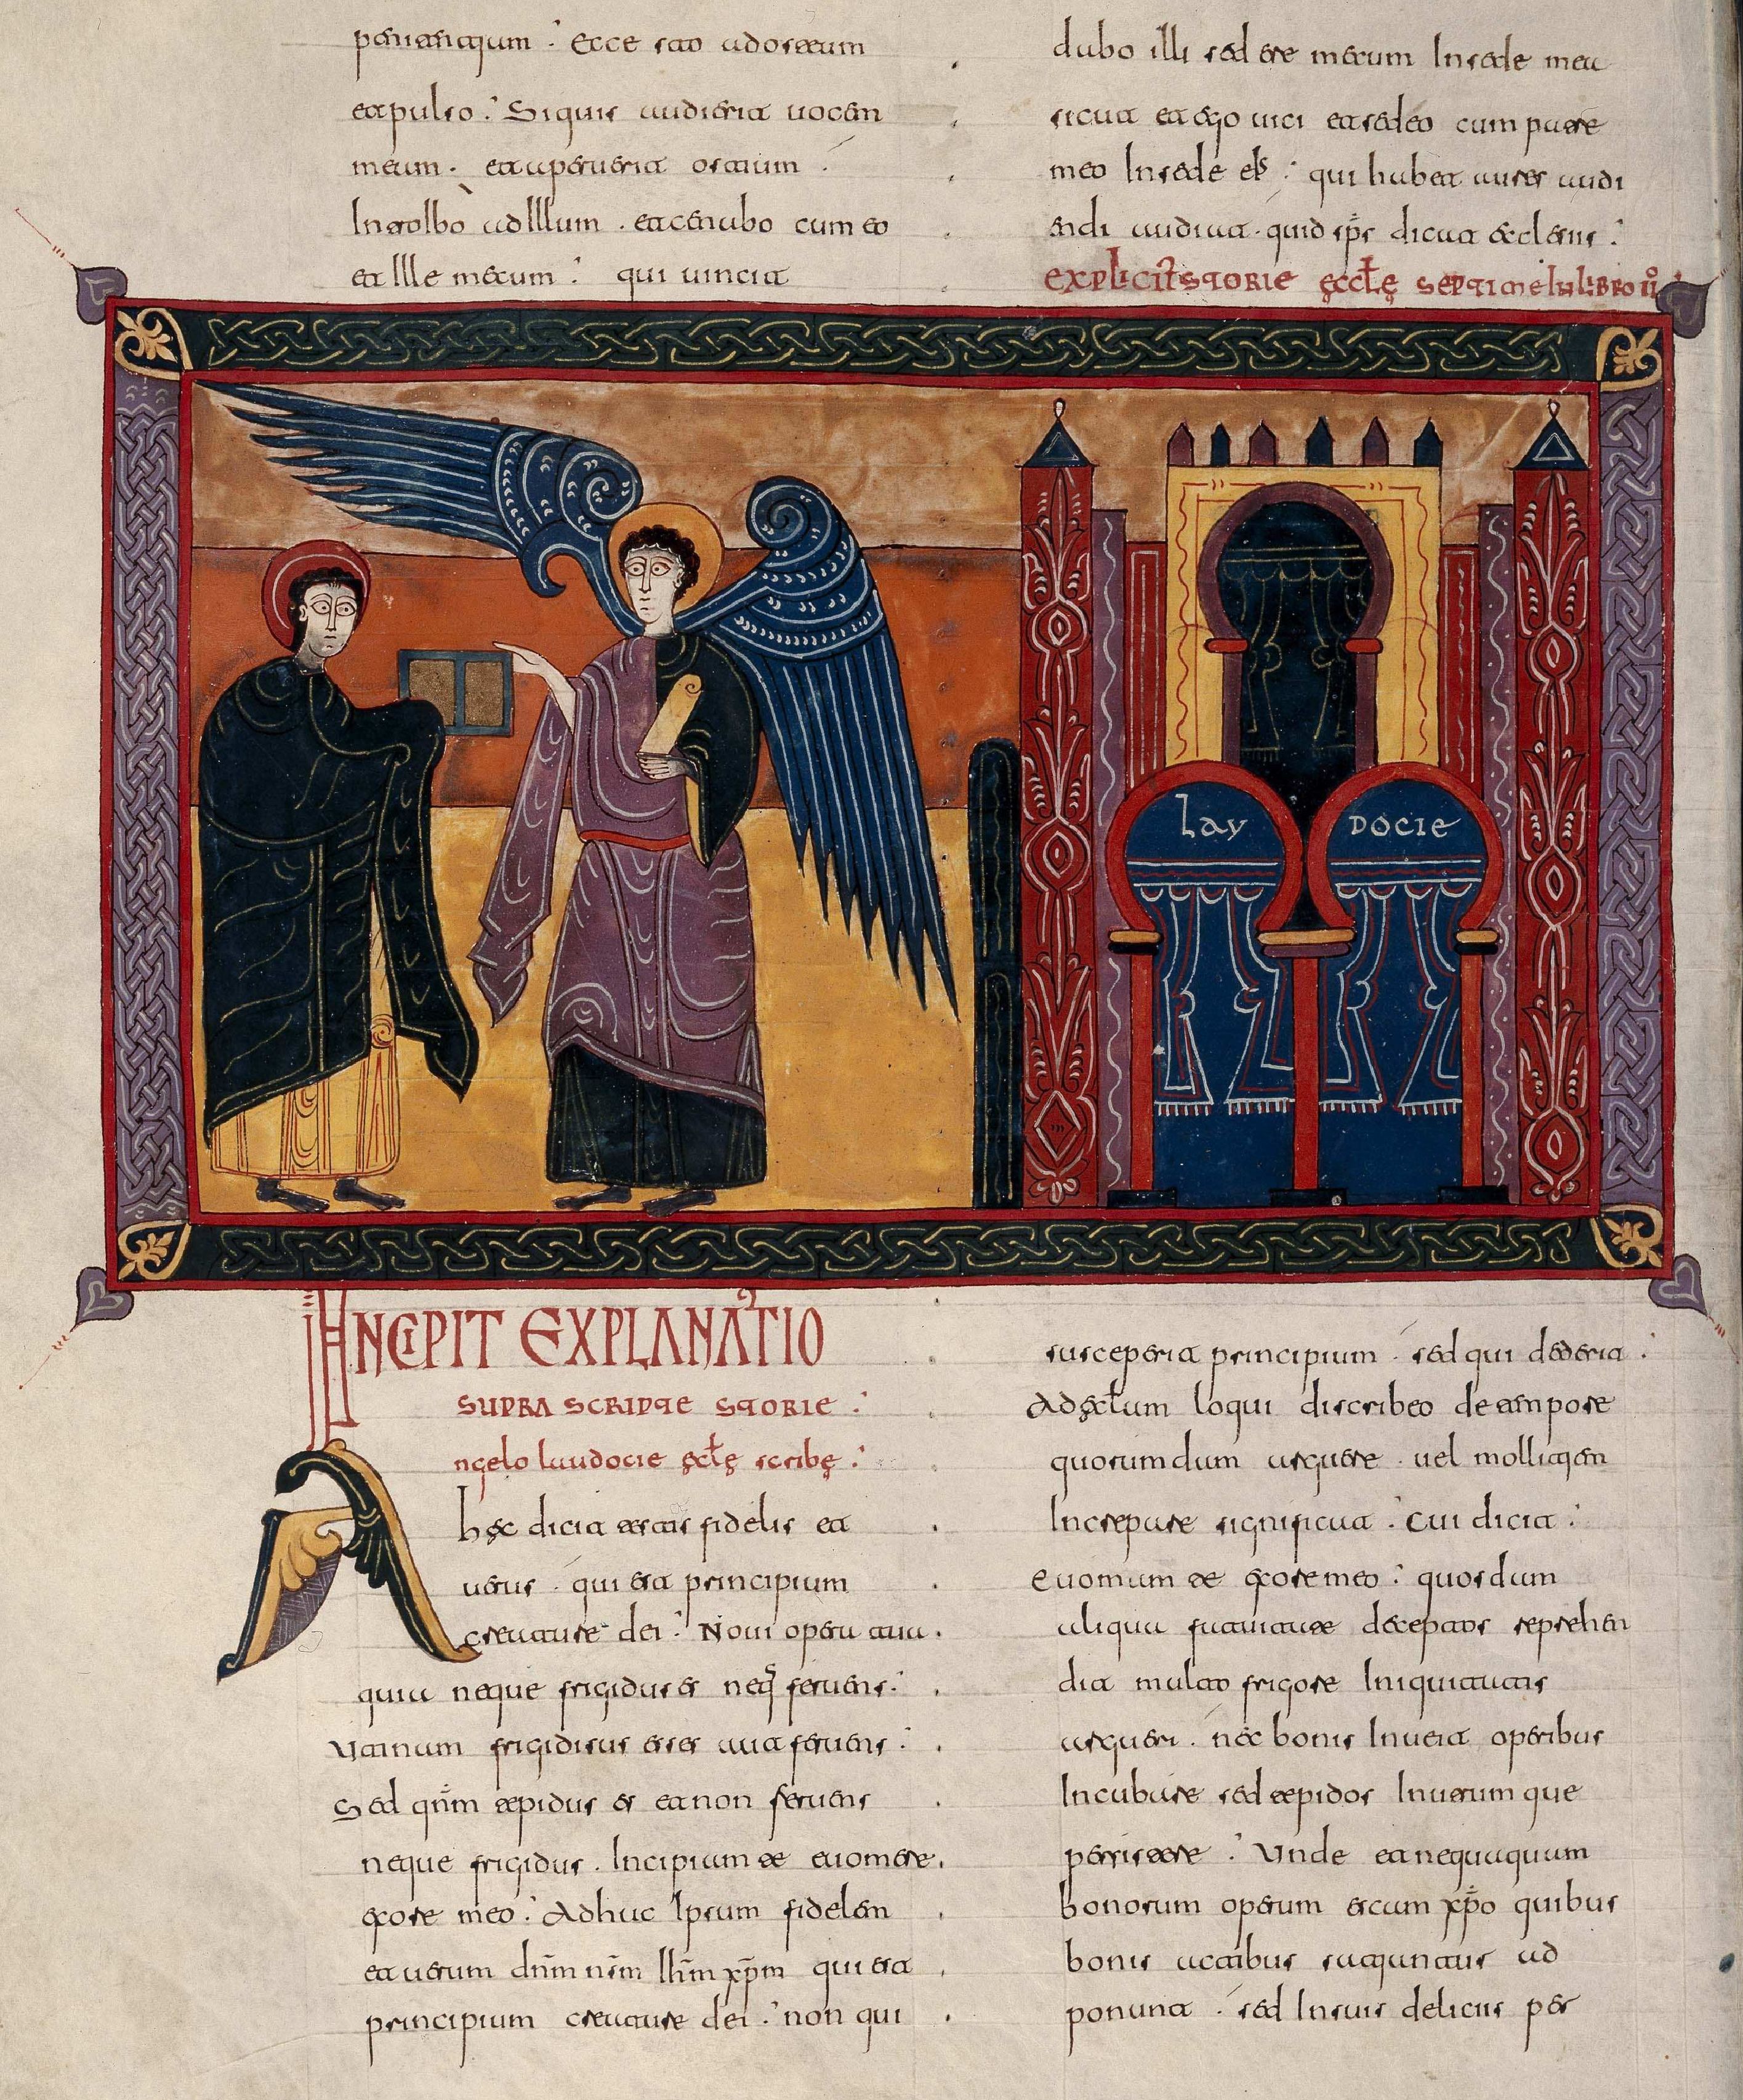 penitentiam : Ecce sto ad ostium
et pulso : Si quis audierit uocem
meam . et aperuerit ostium .
Introibo ad Illum . et cenabo cum eo
et Ille mecum : qui uincit
dabo illi sedere mecum In sede mea
sicut et ego uici et sedeo cum patre
meo In sede eis : qui habet aures audi
endi audiat . quid sp̄s dicat ecclesiis :
explicit storie ęcclę septime In libro IIº
lay docie
INCIPIT EXPLANATIO
supra scripte storie :
Angelo laudocie ęclę scribę :
hęc dicit testis fidelis et
uerus . qui est principium
creature dei : Noui opera tua .
quia neque frigidus es neq; feruens :
Utinam frigidisus esses aut feruens :
Sed qnm̄ tepidus es et non feruens
neque frigidus . Incipiam te euomere
ex ore meo : Adhuc Ipsum fidelem
et uerum dnm̄ nsm̄ Ihm̄ xpm̄ qui est
principium creature dei : non qui
susceperit principium . sed qui dederit :
Ad ęclam loqui discribeo de tempore
quorumdam arguere . uel mollitiem
Increpare significat : cui dicit :
euomam te ex ore meo : quosdam
aliqua fatuitate deceptos reprehen
dit multo frigore Iniquitatis
argueri . nec bonis Inueit operibus
Incubare sed tepidos In utrumque
persistere : Unde et nequaquam
bonorum operum escam xp̄o quibus
bonis actibus satiantur ad
ponunt . sed In suis deliciis per